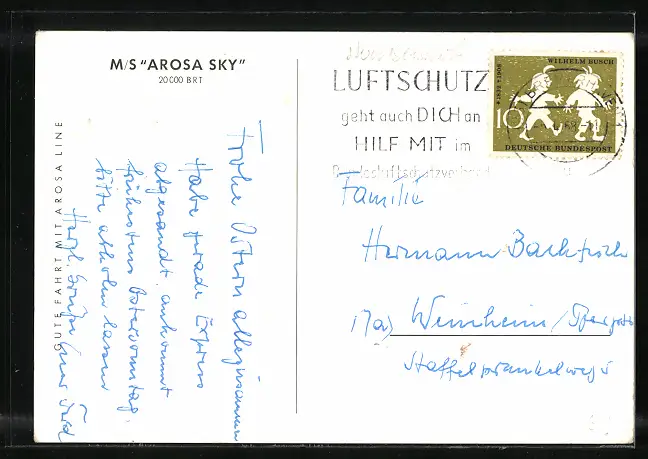 M/S "AROSA SKY"
20000 BRT
GUTE FAHRT MIT AROSA LINE
Frohe Ostern allezusammen
Habe gerade Express
abgesandt, ankommt
frühestens Ostersonntag,
bitte abholen lassen
Herzl. Grüße Euer
LUFTSCHUTZ
geht auch DICH an
HILF MIT im
Bundesluftschutzverband
WILHELM BUSCH
* 1832 † 1908
10
DEUTSCHE BUNDESPOST
Familie
Hermann Backfisch
17a) Weinheim/